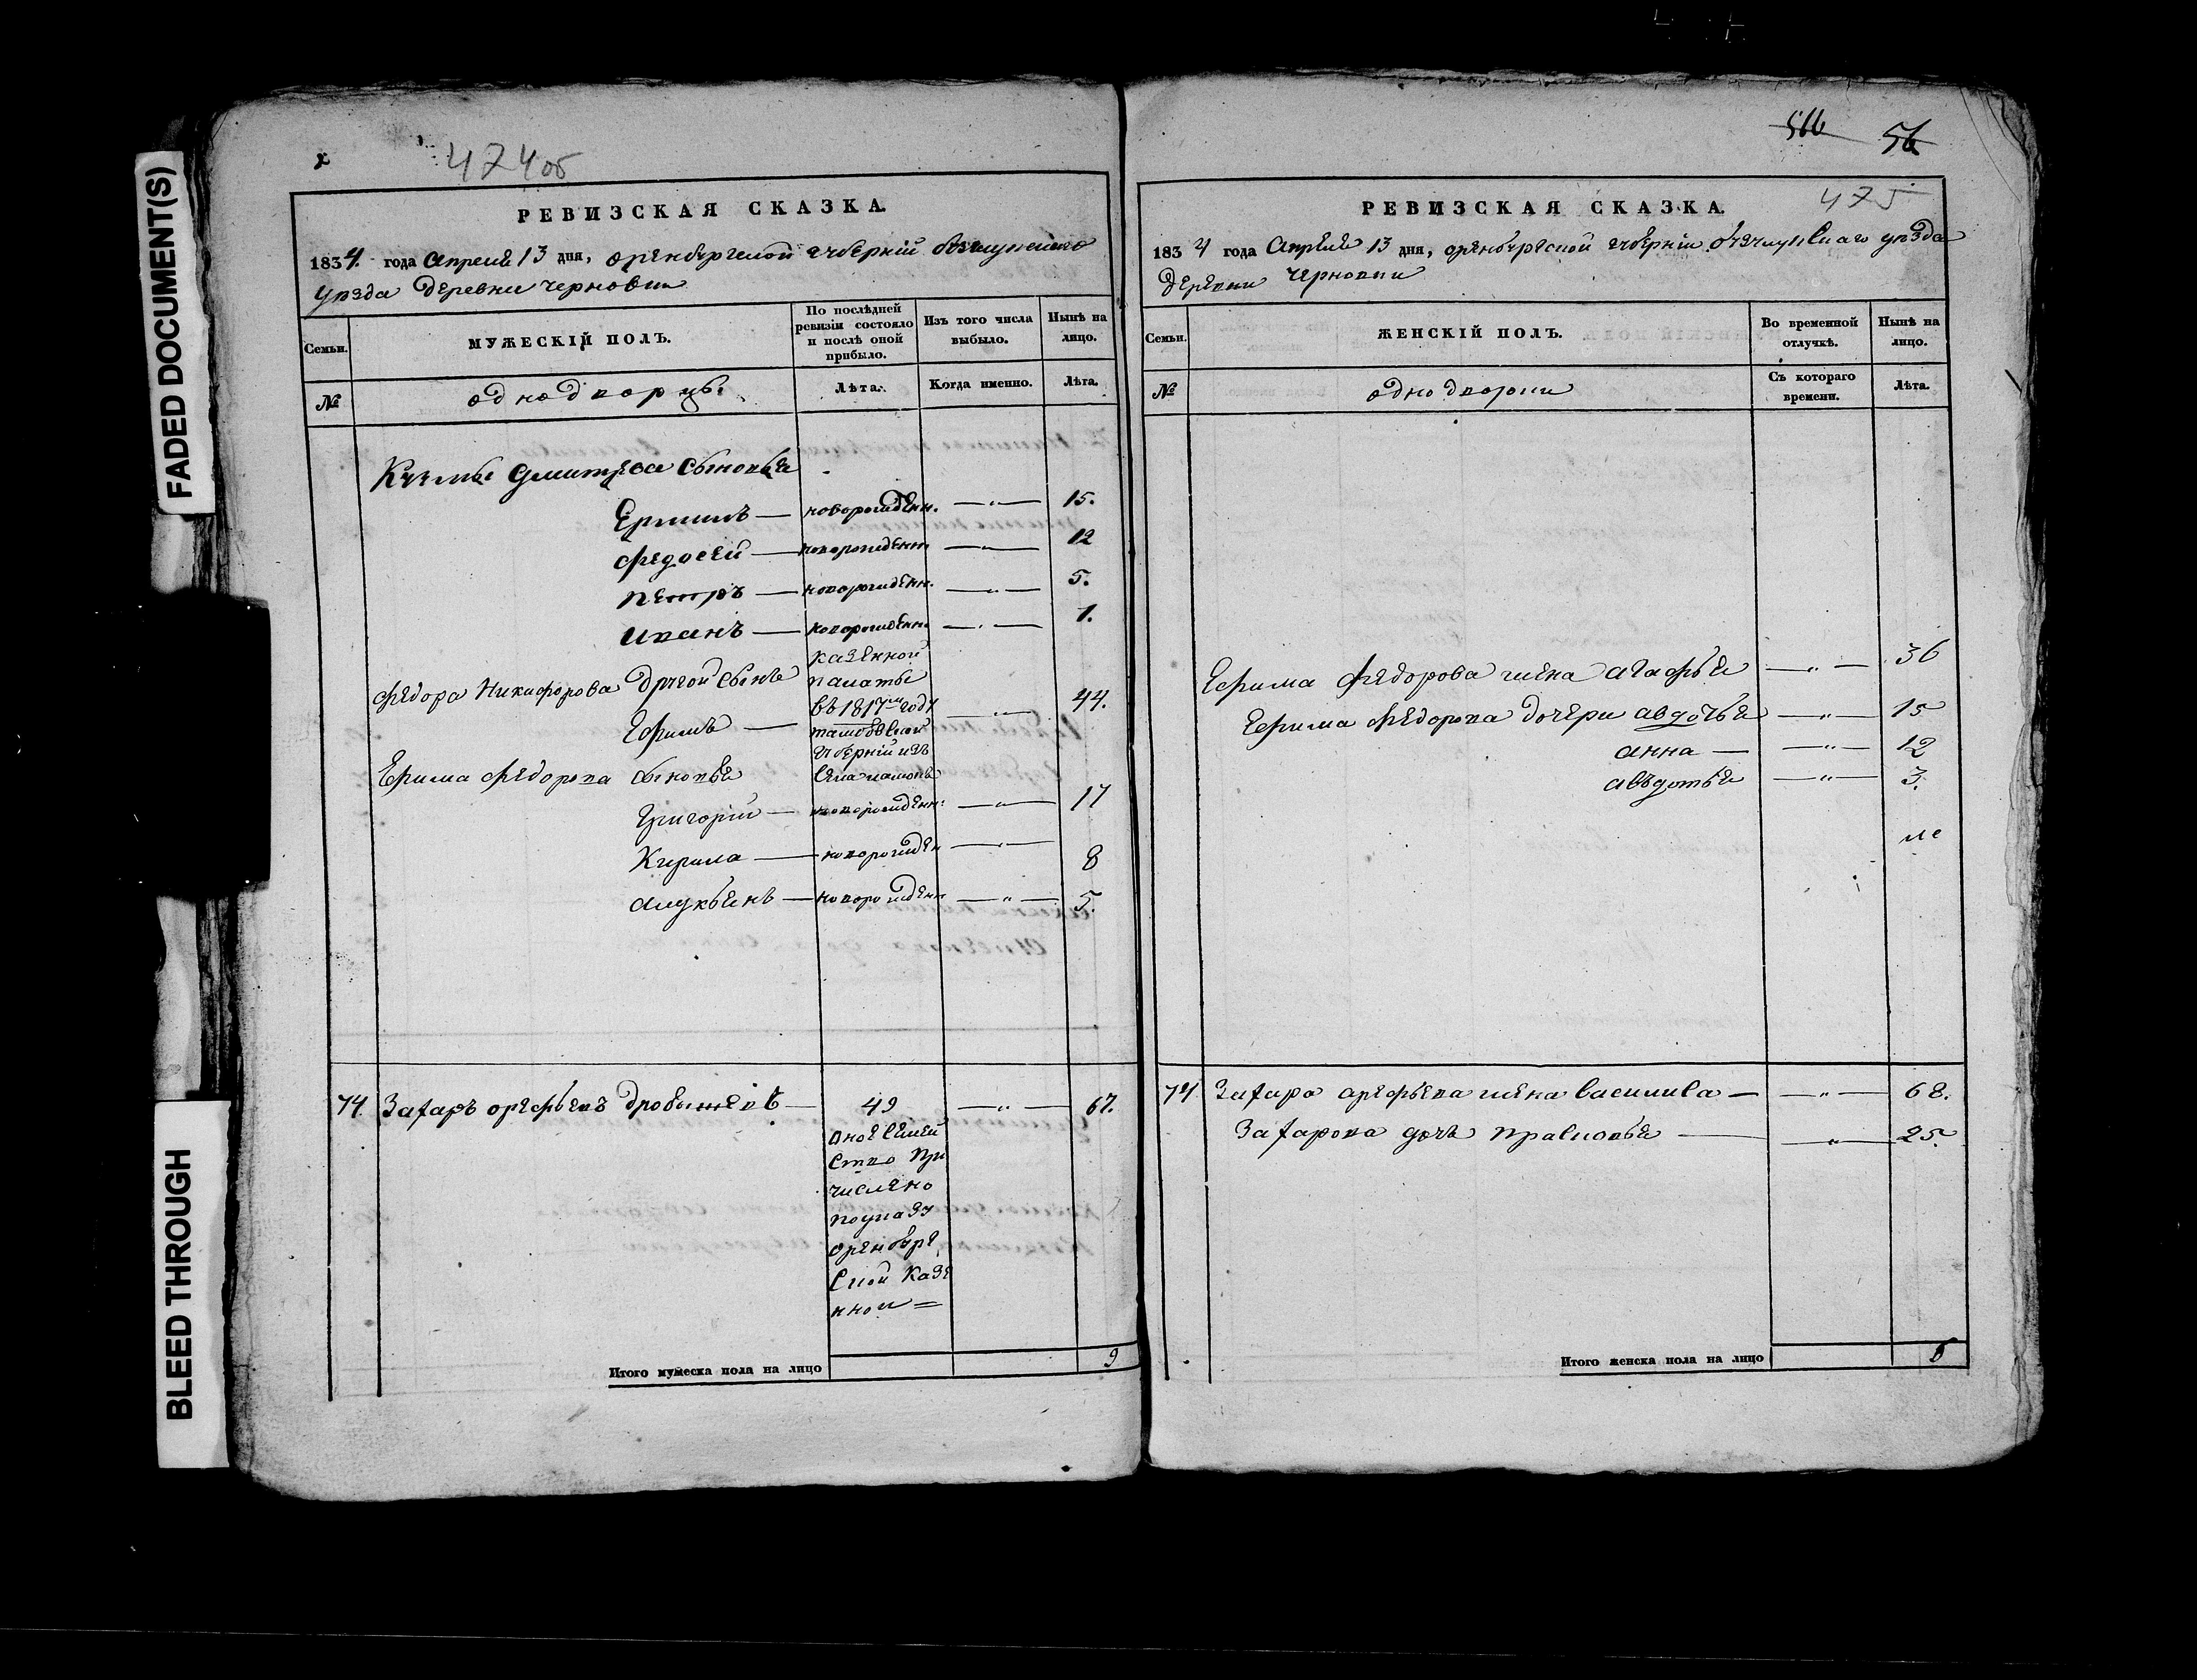 FADED DOCUMENT(S)
BLEED THROUGH
х
474об
РЕВИЗСКАЯ СКАЗКА.
1834. года апреля 13 дня, оренбургской губернiи бузулукскаго
уезда деревни черновки
Семьи.
МУЖЕСКIЙ ПОЛЪ.
По послѣдней ревизiи состояло и послѣ оной прибыло.
Изъ того числа выбыло.
Нынѣ на лицо.
№
однодворцы.
Лѣта.
Когда именно.
Лѣта.
Кузмы Дмитрева сыновья
новорожденн. — " — 15.
Федосей — новорожденн — " — 12
Петръ — новорожденн. — " — 5.
Иванъ — новорожденн. — " — 1.
Федора Никифорова другой сынъ
Ефимъ — " — 44.
казенной
палаты
въ 1817м году
тамбовской
губернiи изъ
села
Ефима Федорова сыновья
Григорiй — новорожденн: — " — 17
Кирила — новорожден — " — 8
Лукьянъ — новорожденн — " — 5.
74. Захаръ орефьевъ 49 — " — 67.
оное семей
ство при
числено
по указу
оренбург
ской казе
нной =
Итого мужеска пола на лицо 9
566 56
475
РЕВИЗСКАЯ СКАЗКА.
1834 года Апреля 13 дня, оренбургской губернiи бузулукскаго уезда
деревни черновки
Семьи.
ЖЕНСКIЙ ПОЛЪ.
Во временной отлучкѣ.
Нынѣ на лицо.
№
однодворки
Съ котораго времени.
Лѣта.
Ефима Федорова жена агафья — " — 36
Ефима Федорова дочери авдотья — " — 15
анна — — " — 12
авъдотья — " — 3.
74 Захара арефьева жена василиса — — " — 68.
Захарова дочь прасковья — — " — 25.
Итого женска пола на лицо 6